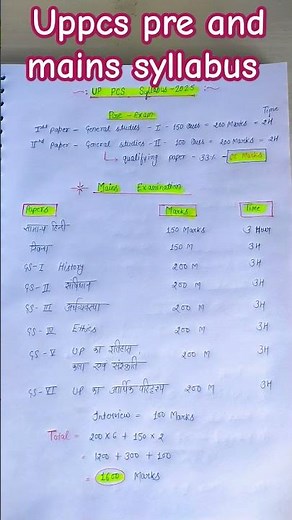 Uppcs pre and
mains syllabus
UP PCS Syllabus-2025
Pre - Exam
Time
Ist Paper - General studies - I - 150 Ques = 200 Marks = 2H
IInd Paper - General studies - II - 100 Ques = 200 Marks = 2H
qualifying paper - 33%
Mains Examination
Papers Marks Time
सामान्य हिन्दी 150 Marks 3 Hour
निबन्ध 150 M 3H
GS-I History 200 M 3H
GS-II संविधान 200 M 3H
GS-III अर्थव्यवस्था 200 M 3H
GS-IV Ethics 200 M 3H
GS-V UP का इतिहास 200 M 3H
कला एवं संस्कृति
GS-VI UP का आर्थिक परिदृश्य 200 M 3H
Interview = 100 Marks
Total = 200 x 6 + 150 x 2
= 1200 + 300 + 100
= 1600 Marks